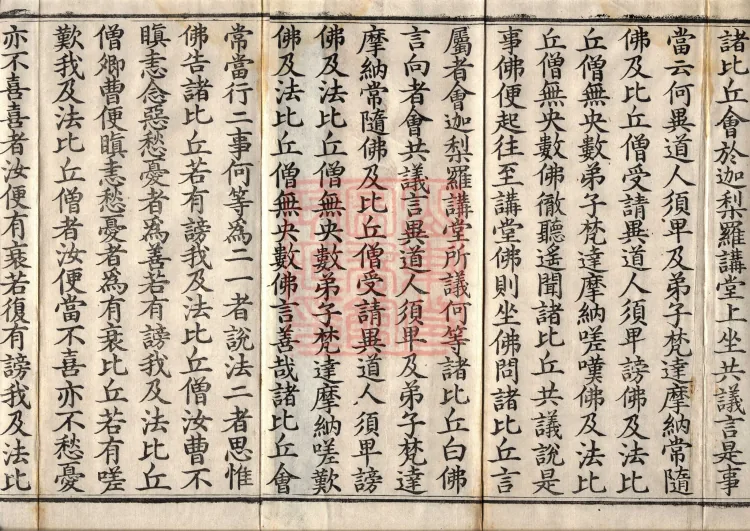 諸比丘會於迦梨羅講堂上坐共議言是事
當云何異道人須卑及弟子梵達摩納常隨
佛及比丘僧受請異道人須卑謗佛及法比
丘僧無央數弟子梵達摩納嗟嘆佛及法比
丘僧無央數佛徹聽遙聞諸比丘共議說是
事佛便起往至講堂佛則坐佛問諸比丘言
屬者會迦梨羅講堂所議何等諸比丘白佛
言向者會共議言異道人須卑及弟子梵達
摩納常隨佛及比丘僧受請異道人須卑謗
佛及法比丘僧無央數弟子梵達摩納嗟歎
佛及法比丘僧無央數佛言善哉諸比丘會
常當行二事何等為二一者說法二者思惟
佛告諸比丘若有謗我及法比丘僧汝曹不
瞋恚念惡愁憂者為善若有謗我及法比丘
僧卿曹便瞋恚愁憂者為有衰比丘若有嗟
歎我及法比丘僧者汝便當不喜亦不愁憂
亦不喜喜者汝便有衰若復有謗我及法比